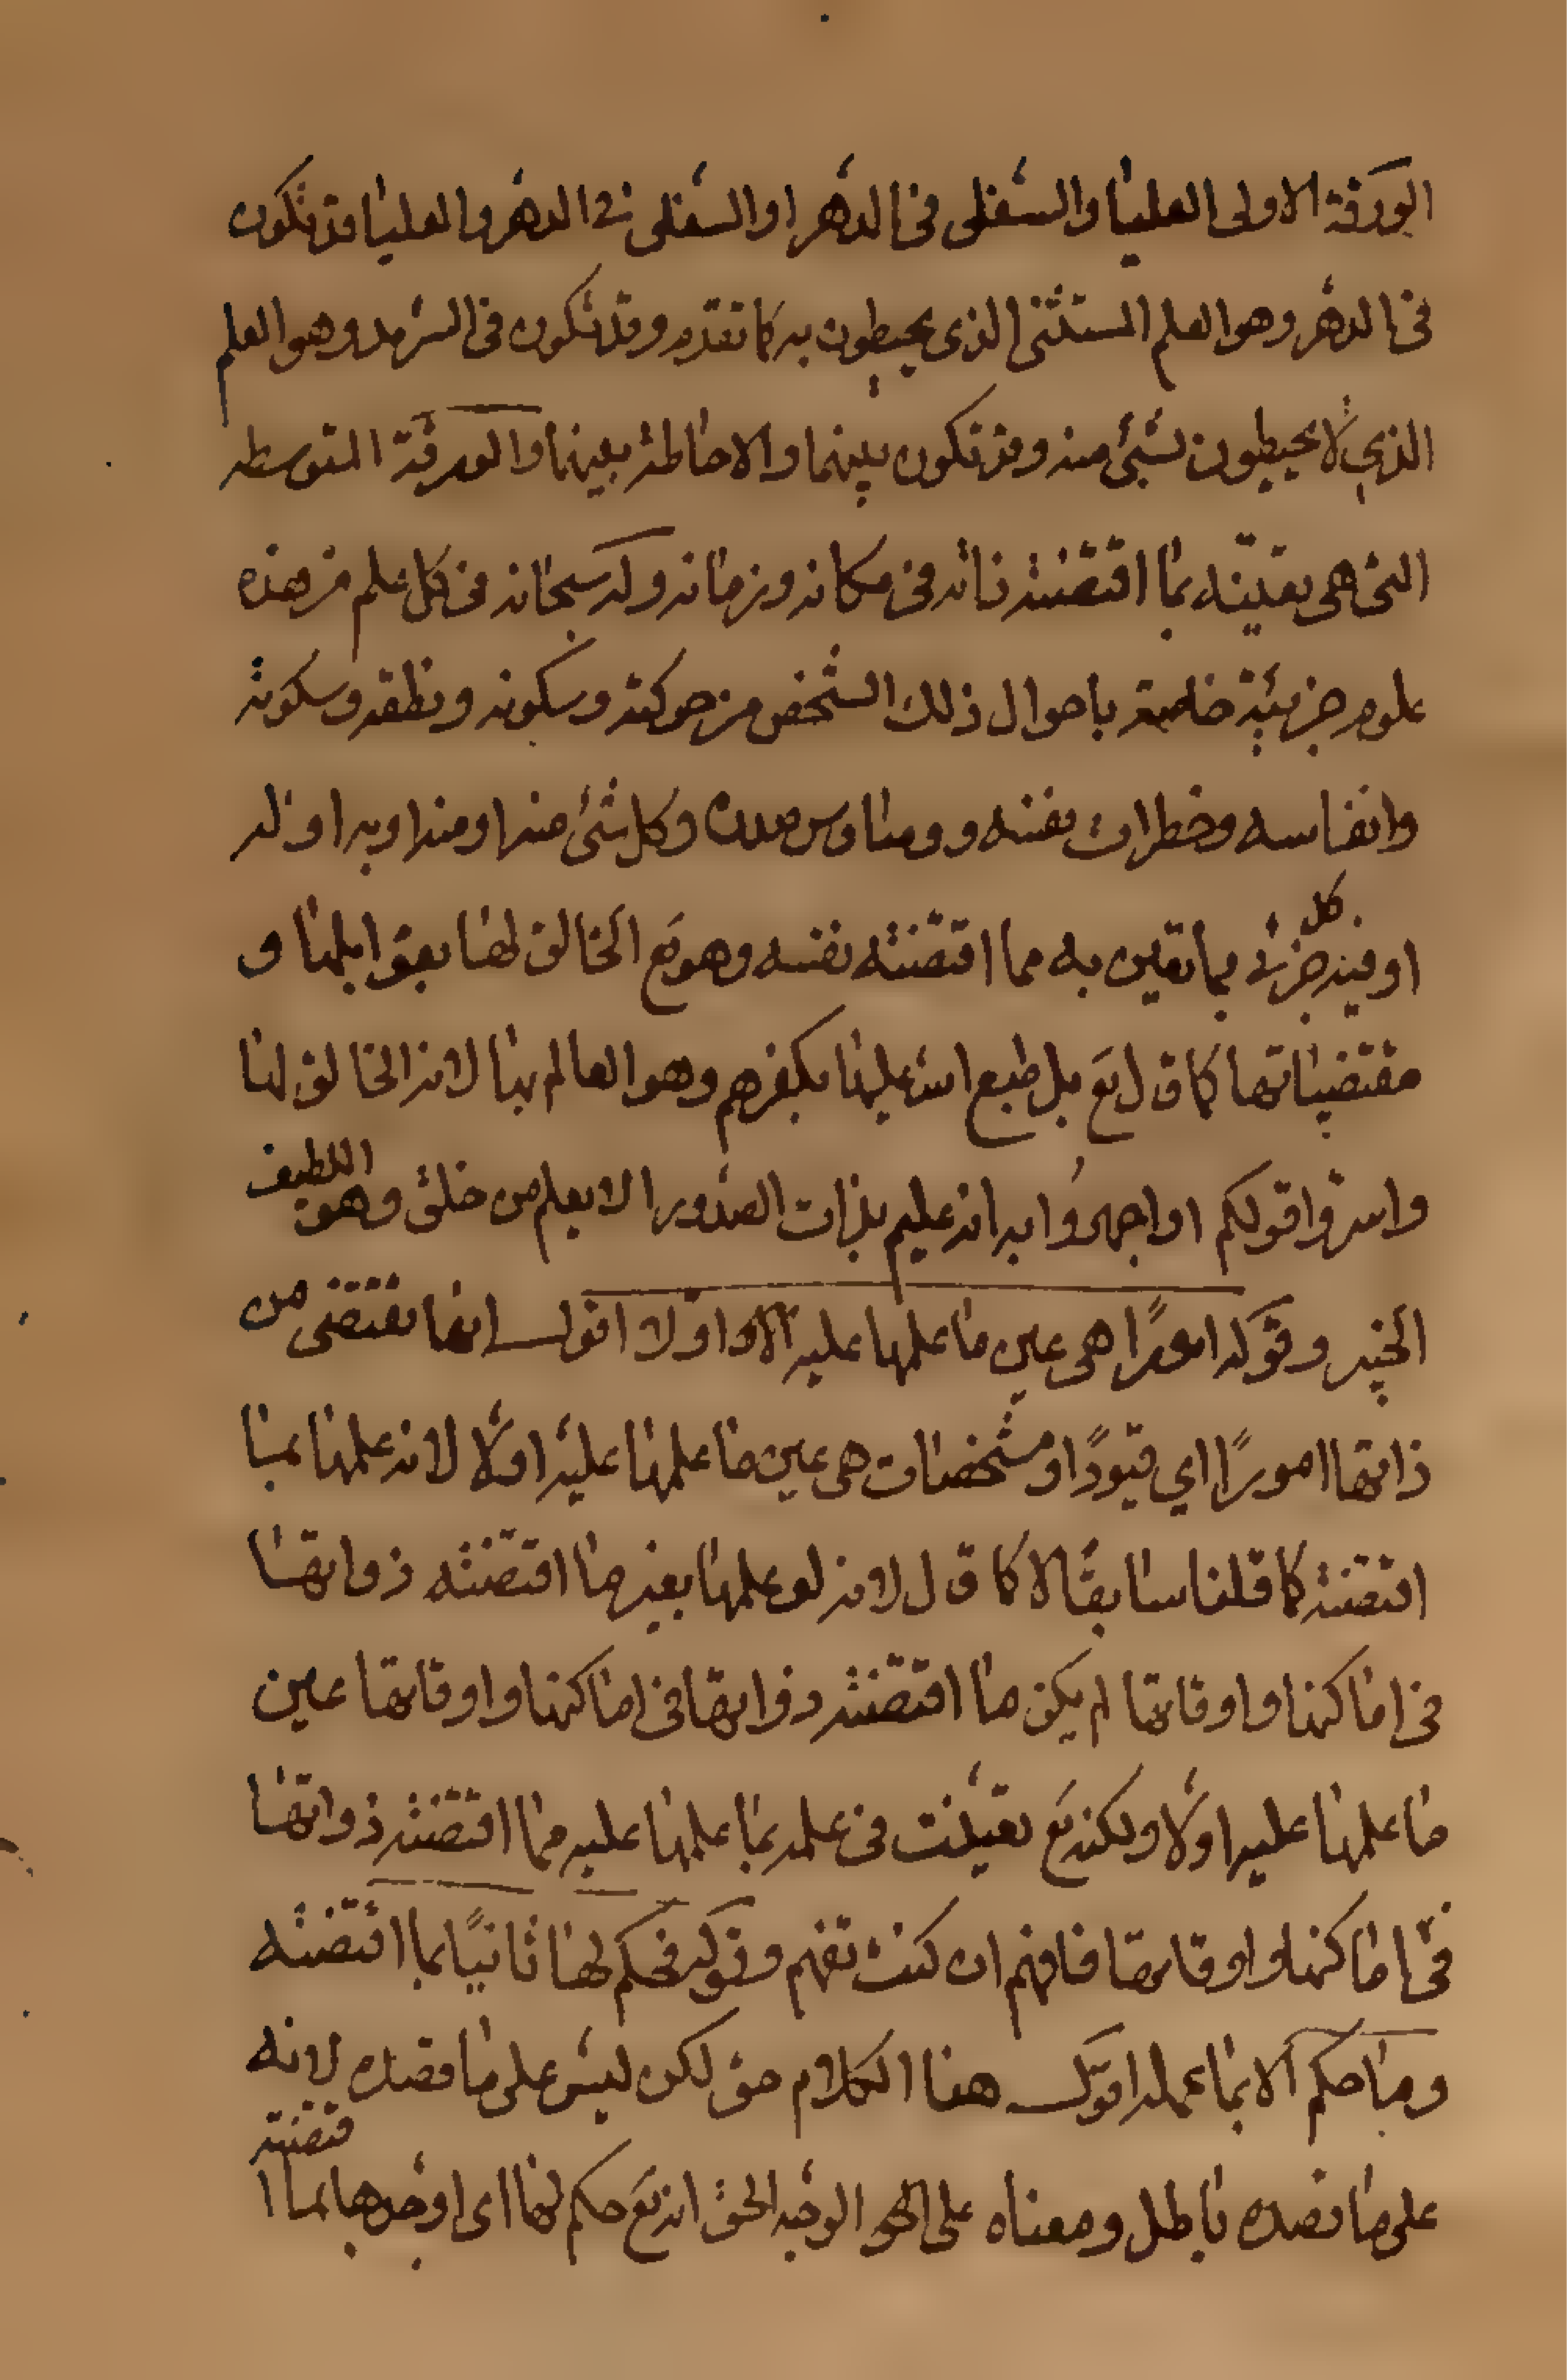 الورقة الاولى العليا والسفلى فى الدهر او السفلى فى الدهر والعليا قد تكون
فى الدهر وهو العلم المستثنى الذى يحيطون به كما تقدم وقد تكون فى السرمد وهو العلم
الذي لا يحيطون بشئ منه وقد تكون بينهما والاحاطة بينهما والورقة المتوسطه
التى هى تعينه بما اقتضته ذاته فى مكانه وزمانه وله سبحانه فى كل علم من هذه
علوم جزئية خاصة باحوال ذلك الشخص من حركته وسكونه ونطقه وسكوته
وانفاسه وخطرات نفسه ووساوس صدره وكل شئ منه او منه او به او له
او فيه كل جزئى بما تعين به مما اقتضته نفسه وهو تع الخالق لها بقوابلها و
مقتضياتها كما قال تع بل طبع الله عليها بكفرهم وهو العالم بها لانه الخالق لها
واسروا قولكم او اجهروا به انه عليم بذات الصدور الا يعلم من خلق وهو اللطيف
الخبير وقوله امورًا هى عين ما علمها عليه الا اولا اقول انها تقتضى من
ذاتها امورًا اي قيودًا ومشخصات هى عين ما علمها عليه اولا لانه علمها بما
اقتضته كما قلنا سابقا لا كما قال لانه لو علمها بغير ما اقتضته ذواتها
فى اماكنها واوقاتها لم يكن ما اقتضته ذواتها فى اماكنها واوقاتها عين
ما علمها عليه اولا ولكنه تع تعينت فى علمه بما علمها عليه مما اقتضته ذواتها
فى اماكنها واوقاتها فافهم ان كنت تفهم وقوله فحكم لها ثانيًا بما اقتضته
وما حكم الا بما علمه اقول هذا الكلام حق لكن ليس على ما قصده لانه
على ما قصده باطل ومعناه على الوجه الحق انه تع حكم لها اى اوجدها بما اقتضته